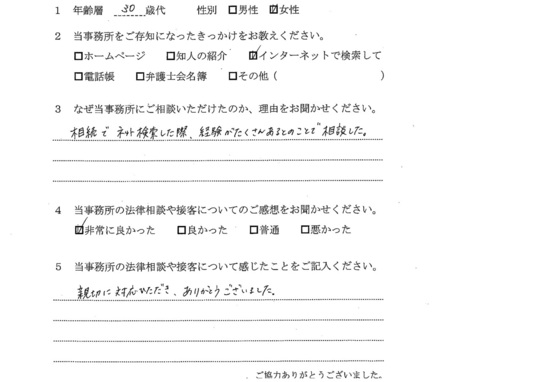 1 年齢層 30 歳代 性別 □男性 ☑女性
2 当事務所をご存知になったきっかけをお教えください。
□ホームページ □知人の紹介 ☑インターネットで検索して
□電話帳 □弁護士会名簿 □その他（ ）
3 なぜ当事務所にご相談いただけたのか、理由をお聞かせください。
相続で ネット検索した際、経験がたくさんあるとのことで 相談した。
4 当事務所の法律相談や接客についてのご感想をお聞かせください。
☑非常に良かった □良かった □普通 □悪かった
5 当事務所の法律相談や接客について感じたことをご記入ください。
親切に対応いただき、ありがとうございました。
ご協力ありがとうございました。